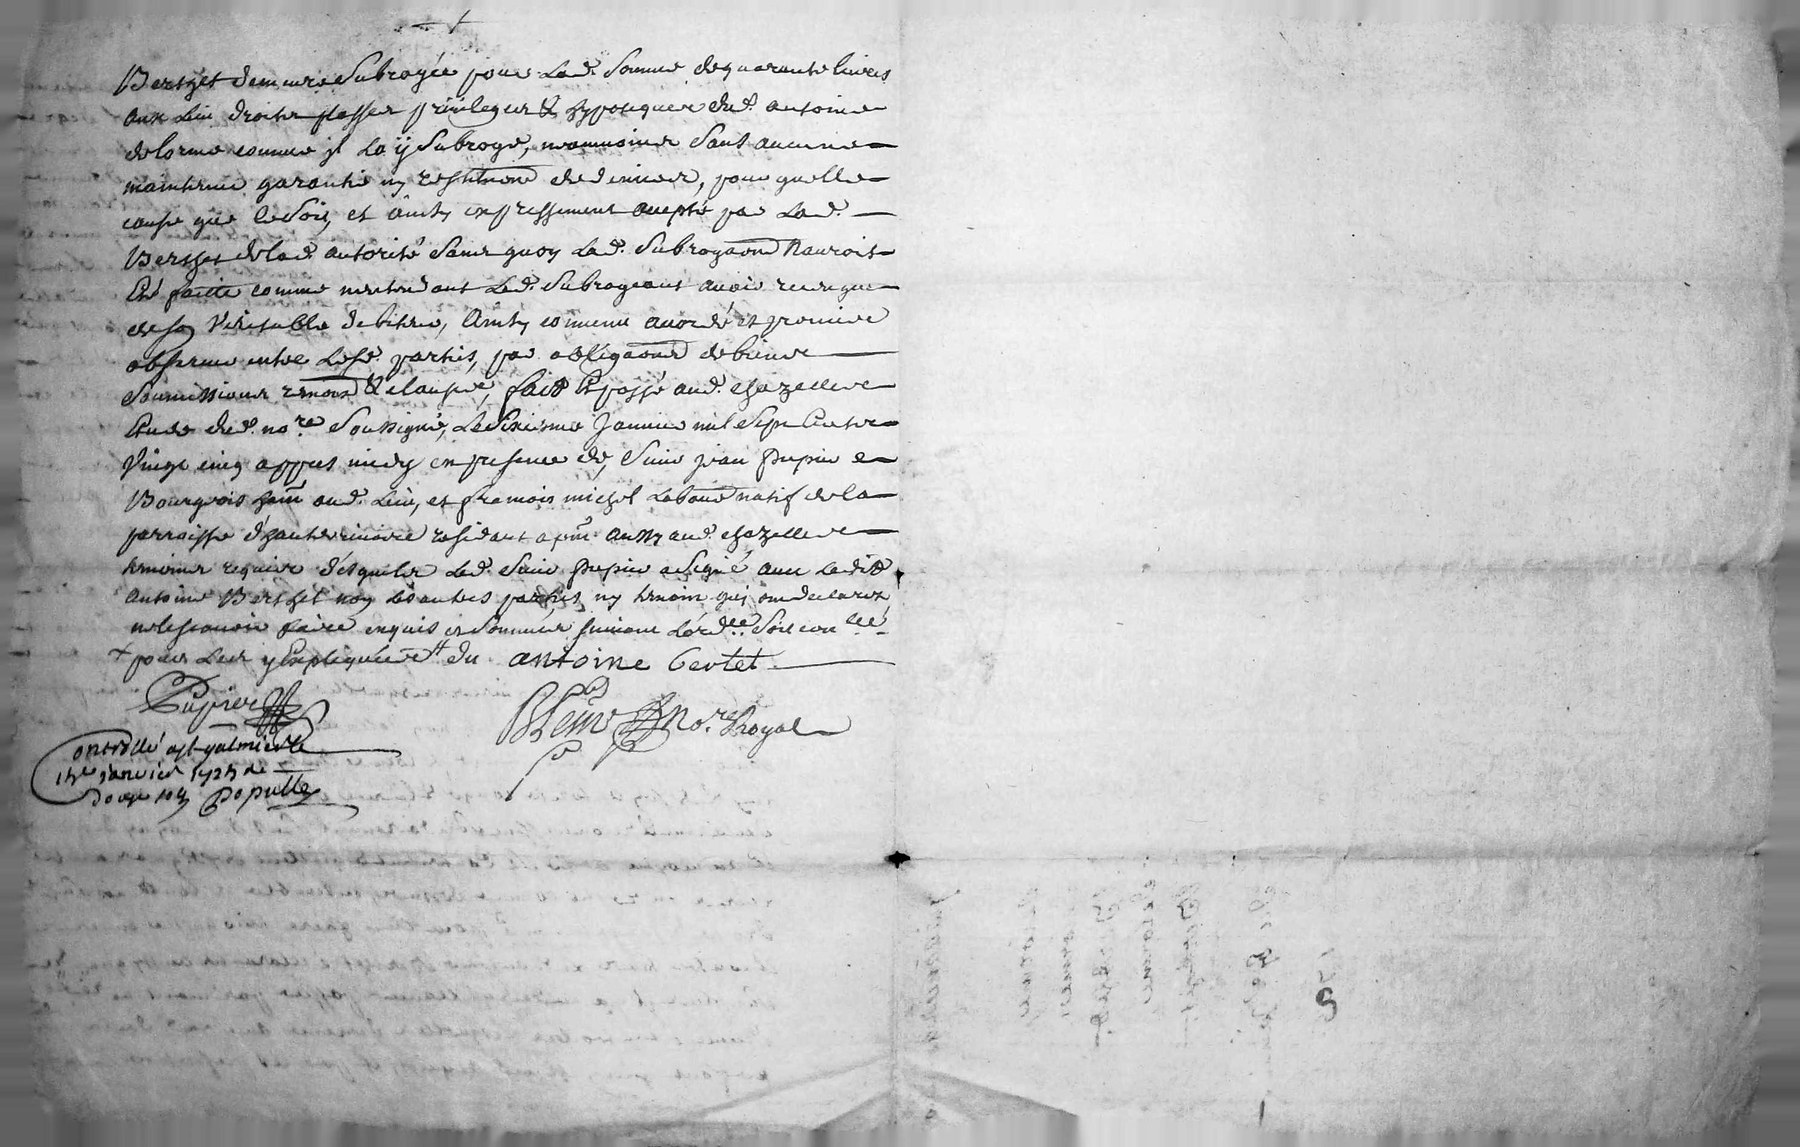 Berthet demeure Subrogée pour Lad. Somme de quarante livres
aux lieu droits places privileges & hypoteques dud. antoine
delorme comme jl La ÿ Subroge, neammoins Sans aucune
maintenue garantie ny restitution de deniers, pour quelle
cause que ce Soit, et ainsy expressement accepté par Lad.
Berthet de lad. autorité Sans quoy Lad. Subrogaon Nauroit
Eté faitte comme n'entendant Led. Subrogeant avoir receu que
de Son Veritable debitrice, Ainsy convenu accordé et promis
observer entre Lesd. parties, par obligaons de biens
Soumissions renons & clauses, fait Et passé aud. chazelles
Etude dud. nore Soussigné, Le Sixieme Janvier mil Sept Cents
Vingt cinq appres midy en presence de Sieur jean Pupier
Bourgeois hant aud. Lieu, et francois michel Laboure natif de la
parroisse d'hauterivoire residant a pnt aussy aud. chazelles
temoins requis desquels Led. Sieur Pupier a Signé avec Ledit
antoine Berthet non Les autres parties ny temoin qui ont declarez
ne Scavoir faire enquis et Sommés Suivant L'ordce Soit conllé
+ pour Les y Expliquées # du antoine Bertet
Pupier
BLeuve Nore Royal
Controllé a St galmier le
15e janvier 1725 Re
Douze sols Populle